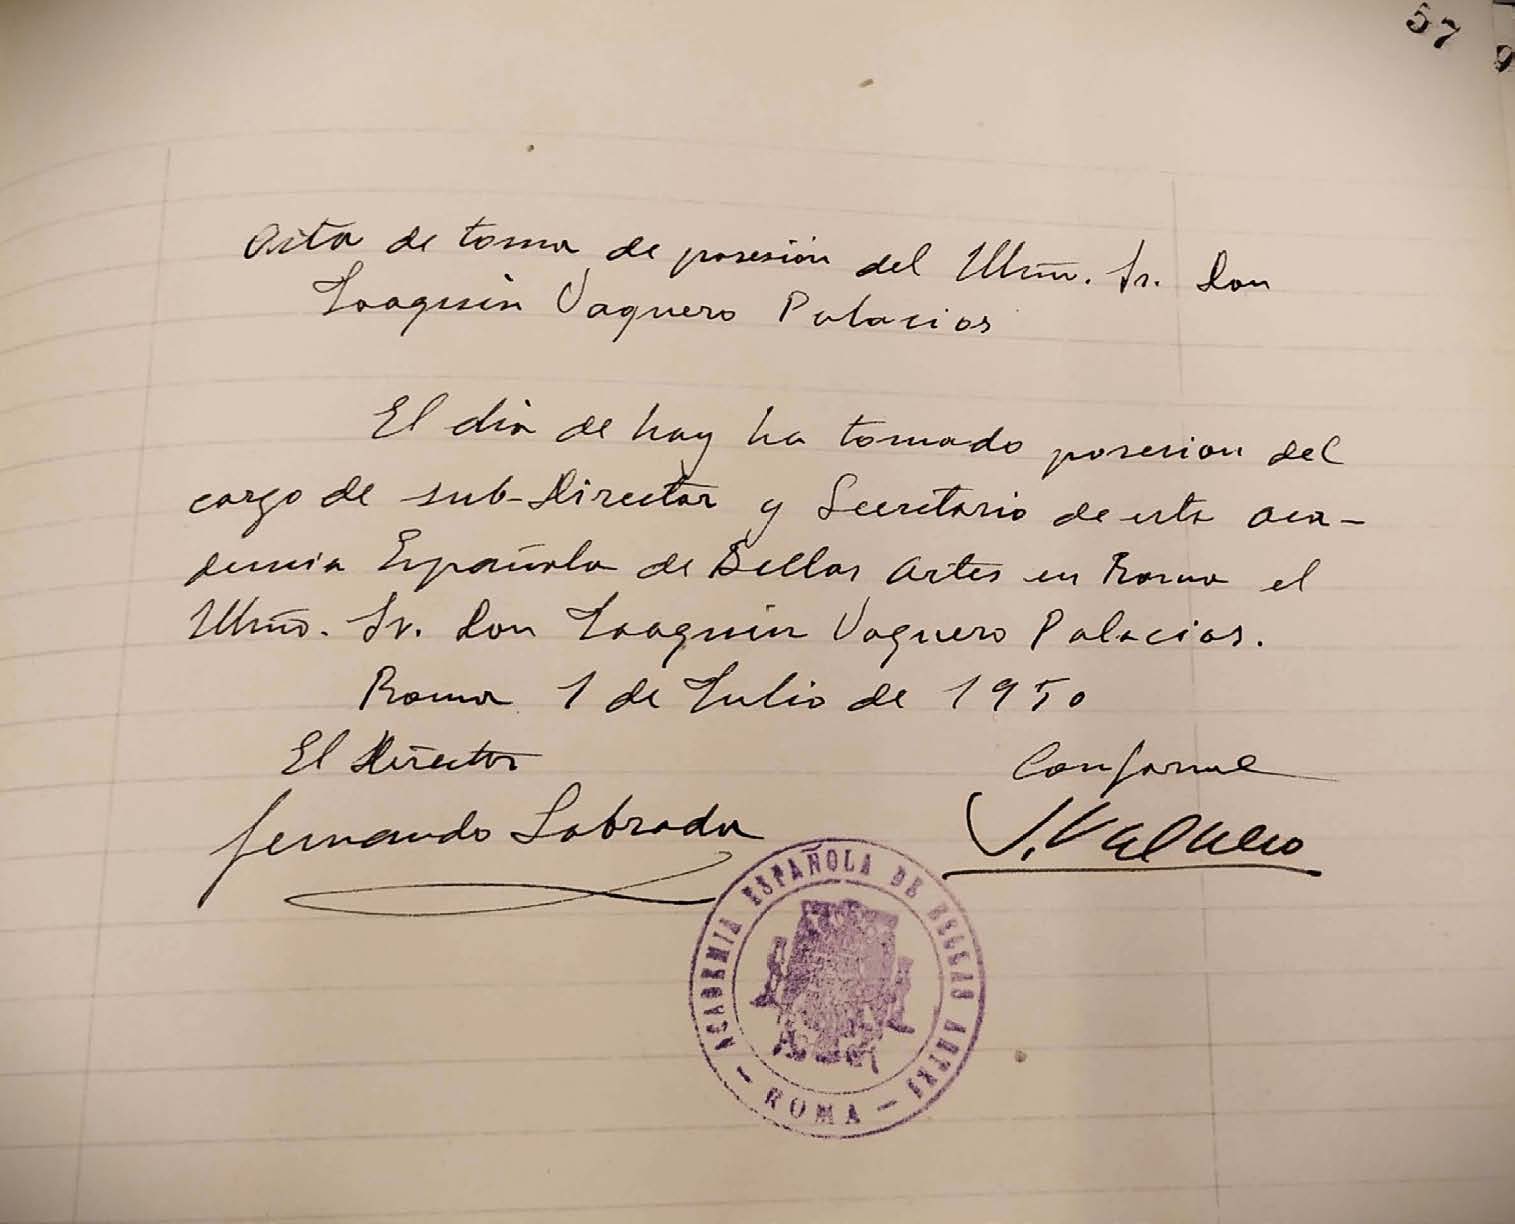 57
Acta de toma de posesión del Illmo. Sr. Don
Joaquin Vaquero Palacios
El dia de hoy ha tomado posesion del
cargo de sub-Director y Secretario de esta Aca-
demia Española de Bellas Artes en Roma el
Illmo. Sr. Don Joaquin Vaquero Palacios.
Roma 1 de Julio de 1950
El Director
Conforme
Fernando Labrada
J. Vaquero
ACADEMIA ESPAÑOLA DE BELLAS ARTES
— ROMA —